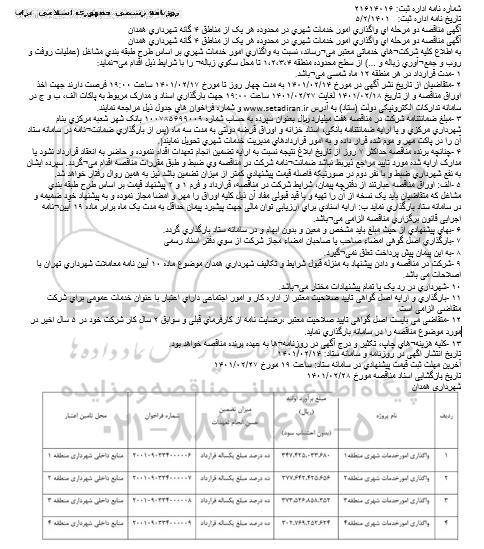 روزنامه رسمی جمهوری اسلامی ایران
شماره نامه اداره ثبت: ۲۱۶۱۴۰۱۴
تاریخ نامه اداره ثبت: ۵/۲/۱۴۰۱
آگهي مناقصه دو مرحله اي واگذاري امور خدمات شهري در محدوده هر يک از مناطق ۴ گانه شهرداري همدان
آگهي مناقصه دو مرحله اي واگذاري امور خدمات شهري در محدوده هر يک از مناطق ۴ گانه شهرداري همدان
به اطلاع کليه شرکت¬هاي خدماتي معتبر مي¬رساند، نسبت به واگذاري امور خدمات شهري بر اساس طرح طبقه بندي مشاغل (عمليات روفت و
روب و جمع¬آوري زباله و ...) از سطح محدوده منطقه ۱،۲،۳،۴ تا محل سکوي زباله¬ را با شرايط ذيل اقدام مي¬نمايد:
۱ -مدت قرارداد در هر منطقه ۱۲ ماه شمسي مي¬باشد.
۲ -متقاضيان از تاريخ نشر آگهي در مورخ ۱۴۰۱/۰۲/۱۴ به مدت چهار روز تا مورخ ۱۴۰۱/۰۲/۱۷ ساعت ۱۹:۰۰ فرصت دارند جهت اخذ
اوراق مناقصه و از تاريخ ۱۴۰۱/۰۲/۱۸ لغايت ۱۴۰۱/۰۲/۲۷ ساعت ۱۹:۰۰ جهت بارگذاري اسناد و مدارک مربوط به پاکات الف، ب و ج در
سامانه تدارکات الکترونيکي دولت (ستاد) به آدرس www.setadiran.ir و شماره فراخوان هاي جدول ذيل مراجعه نمايند.
۳ -مبلغ ضمانتنامه شرکت در مناقصه هفت ميليارد ريال بعنوان سپرده به حساب شماره ۱۰۰۷۸۵۶۹۹۰۰۹ بانک شهر شعبه مرکزي بنام
شهرداري مرکزي و يا ارايه ضمانتنامه بانکي، اسناد خزانه و اوراق قرضه دولتي به مدت سه ماه (پس از بارگذاري ضمانت¬نامه در سامانه ستاد
آن را در پاکت مهر و موم شده قرار داده و به امور قراردادهاي مديريت خدمات شهري تحويل نمايند)
۴ -چنانچه برنده مناقصه حداکثر ۷ روز از تاريخ ابلاغ نتيجه نسبت به ارايه تضمين انجام تعهدات اقدام ننموده و حاضر به انعقاد قرارداد نشود يا
مدارک ارايه شده مورد تاييد مراجع ذيربط نباشد ضمانت¬نامه شرکت در مناقصه وي ضبط و طبق مقررات مناقصه اقدام مي¬گردد. سپرده ايشان
به نفع شهرداري ضبط و با نفر دوم در صورتيکه فاصله قيمت پيشنهادي کمتر از ميزان تضمين باشد نيز به همين روال رفتار خواهد شد.
۵ -الف: اوراق مناقصه عبارتند از دفترچه پيمان، شرايط شرکت در مناقصه، قرارداد و فرم ۱ و ۲ پيشنهاد قيمت بر اساس طرح طبقه بندي
مشاغل که متقاضيان بايد يک نسخه از آن را تهيه و با قيد قبولي مفاد آن ذيل کليه اوراق را مهر و امضا مجاز نموده و به پيشنهاد خود ضميمه و
در سامانه ستاد بارگذاري نمايد. ب: ارايه اسنادي براي ارزيابي توان مالي جهت پيشبرد پيمان حداقل به مدت يک ماه برابر ماده ۱۹ آيين¬نامه
اجرايي قانون برگزاري مناقصه الزامي مي¬باشد.
۶ -بهاي پيشنهادي از حيث مبلغ بايد مشخص و معين و بدون ابهام و در سامانه ستاد بارگذاري گردد.
۷ -بارگذاري اصل گواهي امضاء صاحب يا صاحبان امضاء مجاز شرکت از سوي دفتر اسناد رسمي
۸ -به اين پيمان پيش پرداخت تعلق نمي¬گيرد.
۹ -شرکت در مناقصه و دادن پيشنهاد به منزله قبول شرايط و تکاليف شهرداري همدان موضوع ماده ۱۰ آيين نامه معاملات شهرداري تهران با
اصلاحات مي باشد.
۱۰ -شهرداري در رد يک يا تمام پيشنهادات مختار مي¬باشد.
۱۱ -بارگذاري و ارايه اصل گواهي تاييد صلاحيت معتبر از اداره کار و امور اجتماعي داراي اعتبار با عنوان خدمات عمومي براي شرکت
متقاضي الزامي است.
۱۲ -متقاضي مي بايست اصل گواهي تاييد صلاحيت معتبر ،رضايت نامه از کارفرماي قبلي و سوابق ۲ سال کار شرکت خود در ۵ سال اخير در
مورد موضوع مناقصه را در سامانه بارگذاري نمايد.
۱۳ -کليه هزينه¬هاي چاپ، تکثير و درج آگهي در روزنامه¬ها به عهده برنده مناقصه خواهد بود.
تاريخ انتشار آگهي در روزنامه و سامانه ستاد: ۱۴۰۱/۰۲/۱۴
آخرين مهلت ثبت قيمت پيشنهادي در سامانه ستاد: ساعت ۱۹ مورخ ۱۴۰۱/۰۲/۲۷
تاريخ بازگشايي اسناد مناقصه مورخ ۱۴۰۱/۰۲/۲۸
شهرداري همدان
ردیف نام پروژه مبلغ برآورد اولیه (ریال) (بدون احتساب سود) میزان تضمین حسن انجام تعهدات شماره فراخوان محل تامین اعتبار
۱ واگذاری امورخدمات شهری منطقه۱ ۳۴۷،۴۲۵،۰۳۳،۶۸۰ ده درصد مبلغ یکساله قرارداد ۲۰۰۱۰۹۰۳۳۴۰۰۰۰۰۶ منابع داخلی شهرداری منطقه ۱
۲ واگذاری امورخدمات شهری منطقه۲ ۲۷۷،۶۴۲،۴۲۵،۶۵۶ ده درصد مبلغ یکساله قرارداد ۲۰۰۱۰۹۰۳۳۴۰۰۰۰۰۷ منابع داخلی شهرداری منطقه ۲
۳ واگذاری امورخدمات شهری منطقه۳ ۳۷۳،۵۲۶،۸۵۸،۳۵۲ ده درصد مبلغ یکساله قرارداد ۲۰۰۱۰۹۰۳۳۴۰۰۰۰۰۸ منابع داخلی شهرداری منطقه ۳
۴ واگذاری امورخدمات شهری منطقه۴ ۳۰۲،۷۶۹،۲۵۲،۶۲۴ ده درصد مبلغ یکساله قرارداد ۲۰۰۱۰۹۰۳۳۴۰۰۰۰۰۹ منابع داخلی شهرداری منطقه ۴